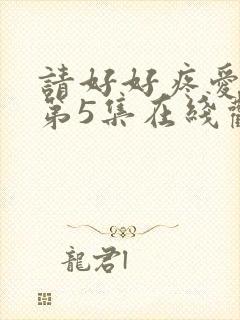 請好好疼愛
第5集在綫
龍君l